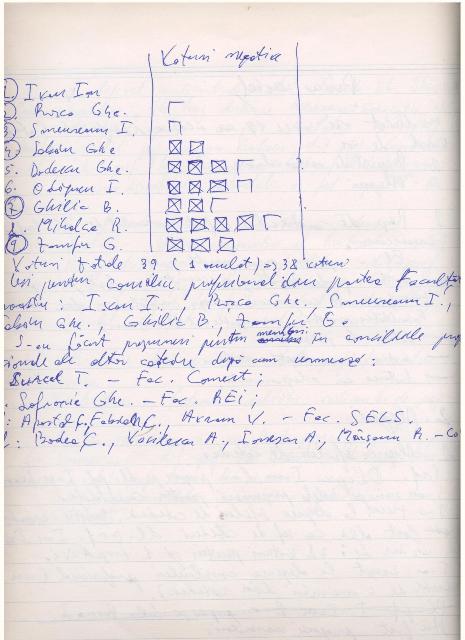 Voturi negative
1 Ioan Ion
2. Roșca Ghe.
3 Smeureanu I.
4 Sabău Ghe
5. Dodescu Ghe.
6. Odăgescu I.
7 Ghilic B.
8. Mihalca R.
9 Zamfir G.
Voturi totale 39 (1 anulat) => 38 voturi
pentru consiliu profesoral din partea Facultăț
: Ioan I., Roșca Ghe., Smeureanu I.,
Ghe., Ghilic B., Zamfir G.
S-au făcut propuneri pentru membri în consiliile prof
sionale ale altor catedre după cum urmează:
Burcel T. – Fac. Comerț;
Sofronie Ghe. – Fac. REI;
: Apostol C., Avram V. – Fac. SELS.
: Bodea C., Vasilescu A., Ionescu A., R. – Co